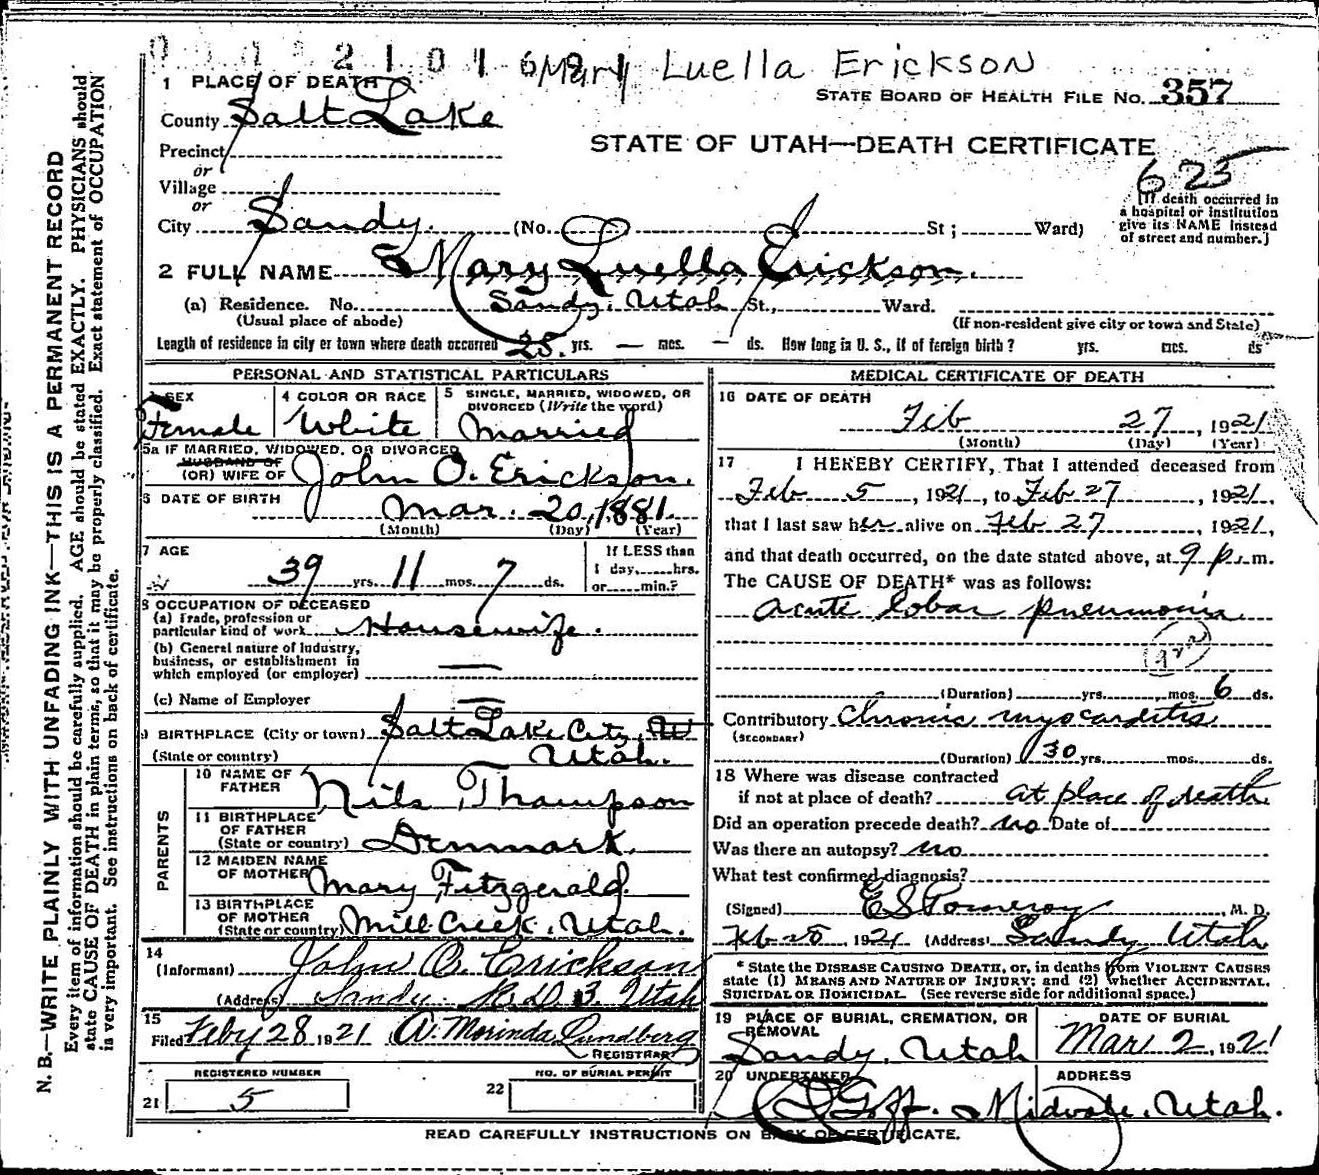 2101 Mary Luella Erickson
1 PLACE OF DEATH
STATE BOARD OF HEALTH FILE NO. 357
County Salt Lake
STATE OF UTAH—DEATH CERTIFICATE
Precinct
or
Village
or
625
[If death occurred in a hospital or institution give its NAME instead of street and number.]
City Sandy. (No. St; Ward)
2 FULL NAME Mary Luella Erickson.
(a) Residence. No. Sandy, Utah St., Ward.
(Usual place of abode) (If non-resident give city or town and State)
Length of residence in city or town where death occurred 25. yrs. — mos. — ds. How long in U. S., if of foreign birth? yrs. mos. ds
PERSONAL AND STATISTICAL PARTICULARS
3 SEX
Female
4 COLOR OR RACE
White
5 SINGLE, MARRIED, WIDOWED, OR DIVORCED (Write the word)
Married
5a IF MARRIED, WIDOWED, OR DIVORCED
HUSBAND OF
(OR) WIFE OF John O. Erickson.
6 DATE OF BIRTH Mar. 20, 1881.
(Month) (Day) (Year)
7 AGE
39 yrs. 11 mos. 7 ds.
If LESS than
1 day,......hrs.
or......min.?
8 OCCUPATION OF DECEASED
(a) Trade, profession or
particular kind of work Housewife.
(b) General nature of Industry,
business, or establishment in
which employed (or employer) —
(c) Name of Employer —
9 BIRTHPLACE (City or town) Salt Lake City, Ut
(State or country) Utah.
PARENTS
10 NAME OF FATHER Nils Thompson
11 BIRTHPLACE OF FATHER
(State or country) Denmark.
12 MAIDEN NAME OF MOTHER Mary Fitzgerald.
13 BIRTHPLACE OF MOTHER
(State or country) Mill Creek, Utah.
14
(Informant) John O. Erickson
(Address) Sandy R.D. 3 Utah
15
Filed Feby 28 1921 A. Morinda Lundberg
REGISTRAR
REGISTERED NUMBER
21 5
NO. OF BURIAL PERMIT
22
MEDICAL CERTIFICATE OF DEATH
16 DATE OF DEATH
Feb 27, 1921
(Month) (Day) (Year)
17 I HEREBY CERTIFY, That I attended deceased from
Feb 5, 1921, to Feb 27, 1921,
that I last saw her alive on Feb 27, 1921,
and that death occurred, on the date stated above, at 9 p.m.
The CAUSE OF DEATH* was as follows:
Acute lobar pneumonia
(Duration) yrs. mos. 6 ds.
Contributory Chronic myocarditis
(SECONDARY)
(Duration) 30 yrs. mos. ds.
18 Where was disease contracted
if not at place of death? At place of death.
Did an operation precede death? no Date of
Was there an autopsy? no
What test confirmed diagnosis?
(Signed) E S Pomeroy, M. D.
Feb 28, 1921 (Address) Sandy Utah
* State the DISEASE CAUSING DEATH, or, in deaths from VIOLENT CAUSES
state (1) MEANS AND NATURE OF INJURY; and (2) whether ACCIDENTAL.
SUICIDAL OR HOMICIDAL. (See reverse side for additional space.)
19 PLACE OF BURIAL, CREMATION, OR REMOVAL
Sandy, Utah
DATE OF BURIAL
Mar 2, 1921
20 UNDERTAKER
Goff.
ADDRESS
Midvale, Utah.
READ CAREFULLY INSTRUCTIONS ON BACK OF CERTIFICATE.
N. B.—WRITE PLAINLY WITH UNFADING INK—THIS IS A PERMANENT RECORD
Every item of information should be carefully supplied. AGE should be stated EXACTLY. PHYSICIANS should
state CAUSE OF DEATH in plain terms, so that it may be properly classified. Exact statement of OCCUPATION
is very important. See instructions on back of certificate.